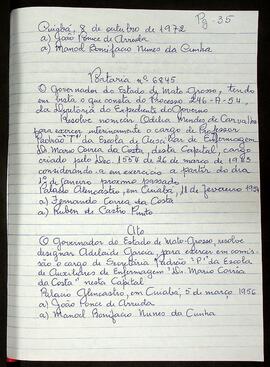 Pg-35
Cuiabá, 8 de outubro de 1972
a) João Ponce de Arruda
a) Manoel Bonifacio Nunes da Cunha
Portaria nº 6845
O Governador do Estado de Mato Grosso, tendo
em vista o que consta do Processo 246-A-54,
da Diretoria do Expediente do Governo
Resolve nomear Odilia Mendes de Carvalho
para exercer interinamente o cargo de Professor
Padrão "I" da Escola de Auxiliar de Enfermagem
"Dr. Mario Correa da Costa, desta Capital, cargo
criado pelo Dec. 1554 de 26 de março de 1953
considerando-a em exercicio a partir do dia
1º de janeiro proximo passado
Palacio Alencastro, em Cuiabá, 11 de fevereiro 1954
a) Fernando Correa da Costa
a) Ruben de Castro Pinto
Ato
O Governador do Estado de Mato-Grosso, resolve
designar Adelaide Garcia, para exercer em comis-
são o cargo de Secretária Padrão "P" da Escola
de Auxiliares de Enfermagem "Dr. Mario Correa
da Costa" nesta Capital
Palacio Alencastro, em Cuiabá, 5 de março, 1956
a) João Ponce de Arruda
a) Manoel Bonifacio Nunes da Cunha